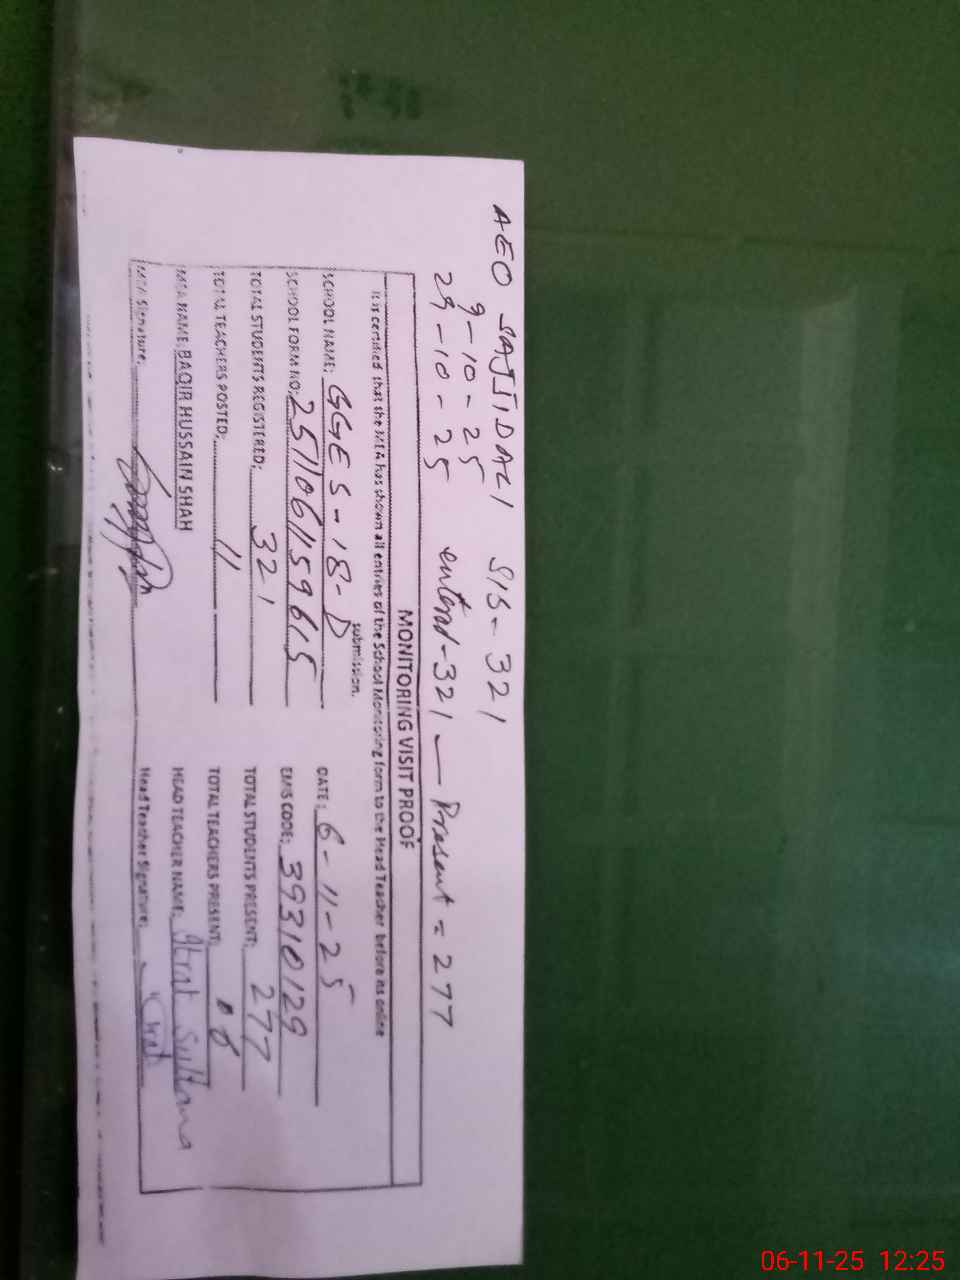 AEO SAJJIDALI SIS- 321
9-10-25
29-10-25 enterd-321 — Present = 277
MONITORING VISIT PROOF
It is certified that the MEA has shown all entries of the School Monitoring form to the Head Teacher before its online
submission.
SCHOOL NAME: GGES-18-D DATE: 6-11-25
SCHOOL FORM NO: 2511061159615 EMIS CODE: 39310129
TOTAL STUDENTS REGISTERED: 321 TOTAL STUDENTS PRESENT: 277
TOTAL TEACHERS POSTED: 11 TOTAL TEACHERS PRESENT:
MEA NAME: BAQIR HUSSAIN SHAH HEAD TEACHER NAME: Itrat Sultana
MEA Signature: Head Teacher Signature:
06-11-25 12:25